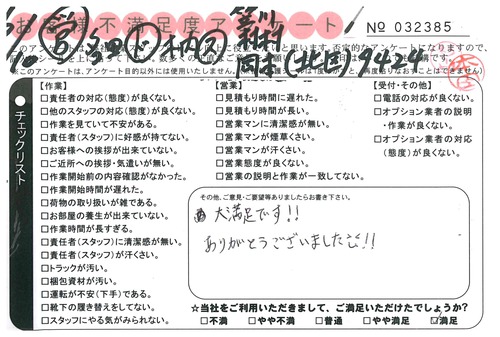 お客様不満足度アンケート
No 032385
【作業】
□責任者の対応(態度)が良くない。
□他のスタッフの対応(態度)が良くない。
□作業を見ていて不安がある。
□責任者(スタッフ)に好感が持てない。
□お客様への挨拶が出来ていない。
□ご近所への挨拶・気遣いが無い。
□作業開始前の内容確認がなかった。
□作業開始時間が遅れた。
□荷物の取り扱いが雑である。
□お部屋の養生が出来ていない。
□作業時間が長すぎる。
□責任者(スタッフ)に清潔感が無い。
□責任者(スタッフ)が汗くさい。
□トラックが汚い。
□梱包資材が汚い。
□運転が不安(下手)である。
□靴下の履き替えをしてない。
□スタッフにやる気がみられない。
【営業】
□見積もり時間に遅れた。
□見積もり時間が長い。
□営業マンに清潔感が無い。
□営業マンが煙草くさい。
□営業マンが汗くさい。
□営業態度が良くない。
□営業の説明と作業が一致してない。
【受付・その他】
□電話の対応が良くない。
□オプション業者の説明
・作業が良くない。
□オプション業者の対応
(態度)が良くない。
チェックリスト
その他、ご意見・ご要望等ありましたらお書き下さい。
大満足です!!
ありがとうございました!!
☆当社をご利用いただきまして、ご満足いただけたでしょうか?
□不満 □やや不満 □普通 □やや満足 ☑満足